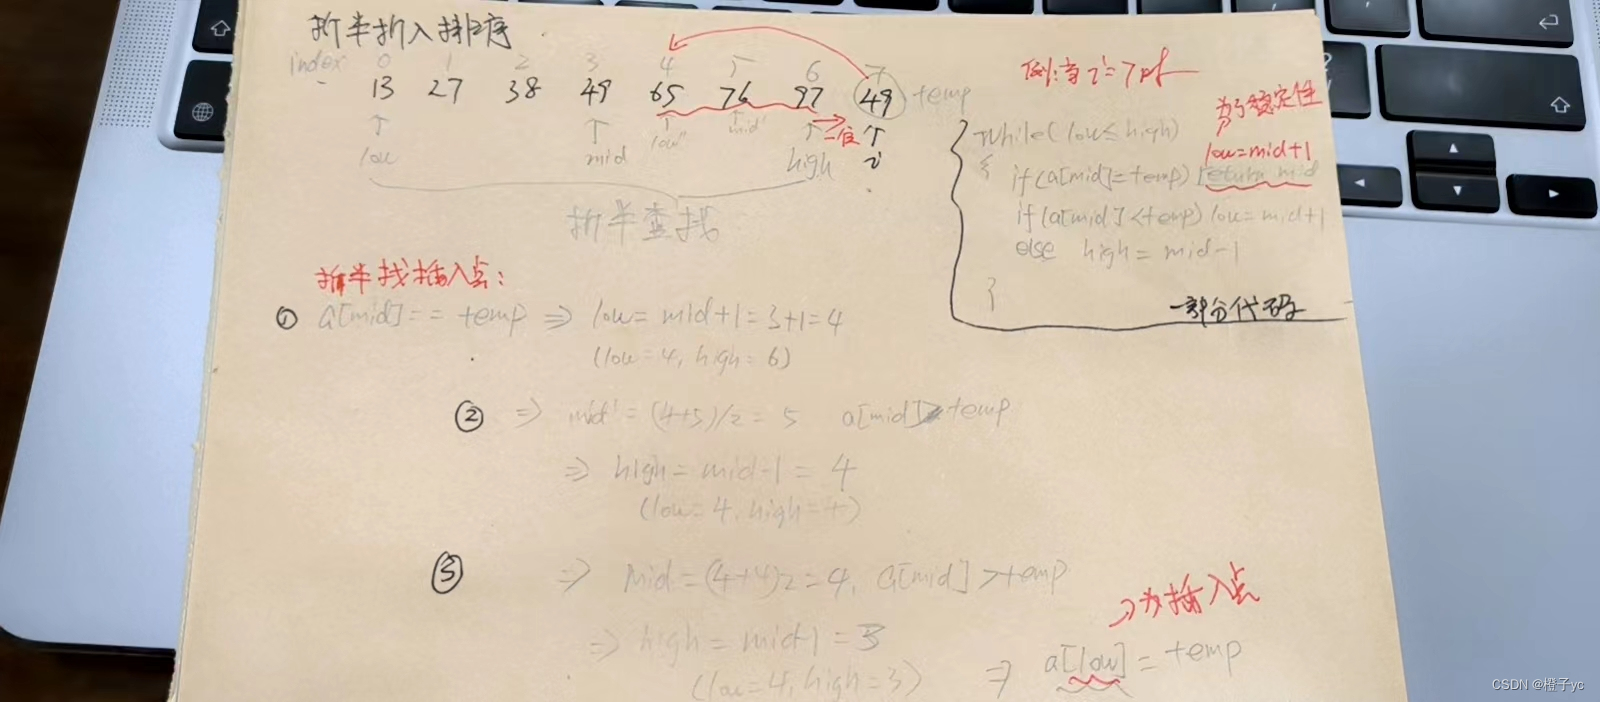 折半折入排序
index 0 1 2 3 4 5 6 7
13 27 38 49 65 76 97 49 temp
low mid low" mid' high 一位 i
折半查找
例:当i=7时
为了稳定性
while(low≤high)
low=mid+1
{ if(a[mid]=temp) return mid
if(a[mid]<temp) low=mid+1
else high=mid-1
}
一部分代码
折半找插入点:
① a[mid]==temp ⇒ low=mid+1=3+1=4
(low=4, high=6)
② ⇒ mid'=(4+5)/2=5 a[mid]>temp
⇒ high=mid-1=4
(low=4, high=4)
③ ⇒ Mid=(4+4)/2=4, a[mid]>temp
⇒ high=mid-1=3
(low=4, high=3)
为插入点
⇒ a[low]=temp
CSDN @橙子yc